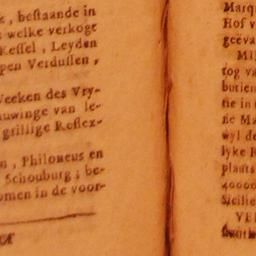 , bestaande in
welke verkogt
Kessel, Leyden
pen Verdussen,
Weeken des Vry-
uwinge van le-
grillige Reflex-
n, Philoneus en
Schouburg; be-
omen in de voor-
Marqu
Hof v
geëva
MI
tog va
butien
tie in
ne Ma
wyl de
lyke R
plaats
40000
Sicilie
VE